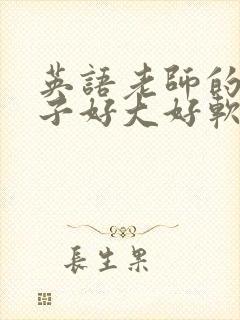 英語老師的
子好大好軟
長生果